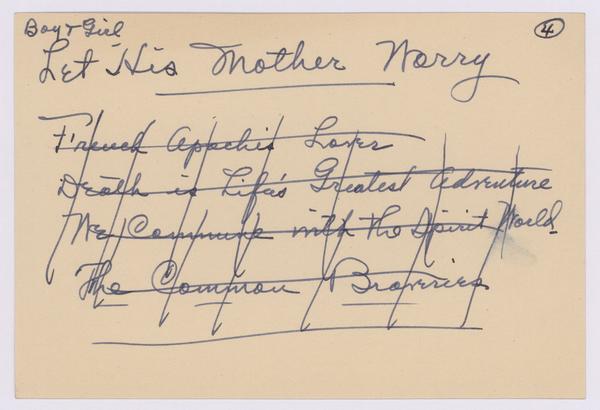 Boy & Girl
4
Let His Mother Worry
French Apache's Lover
Death is Life's Greatest Adventure
We Commune with the Spirit World.
The Common Braveries